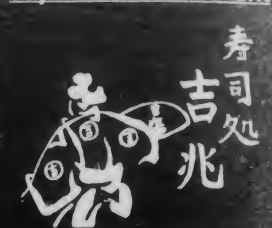 寿司処
吉兆